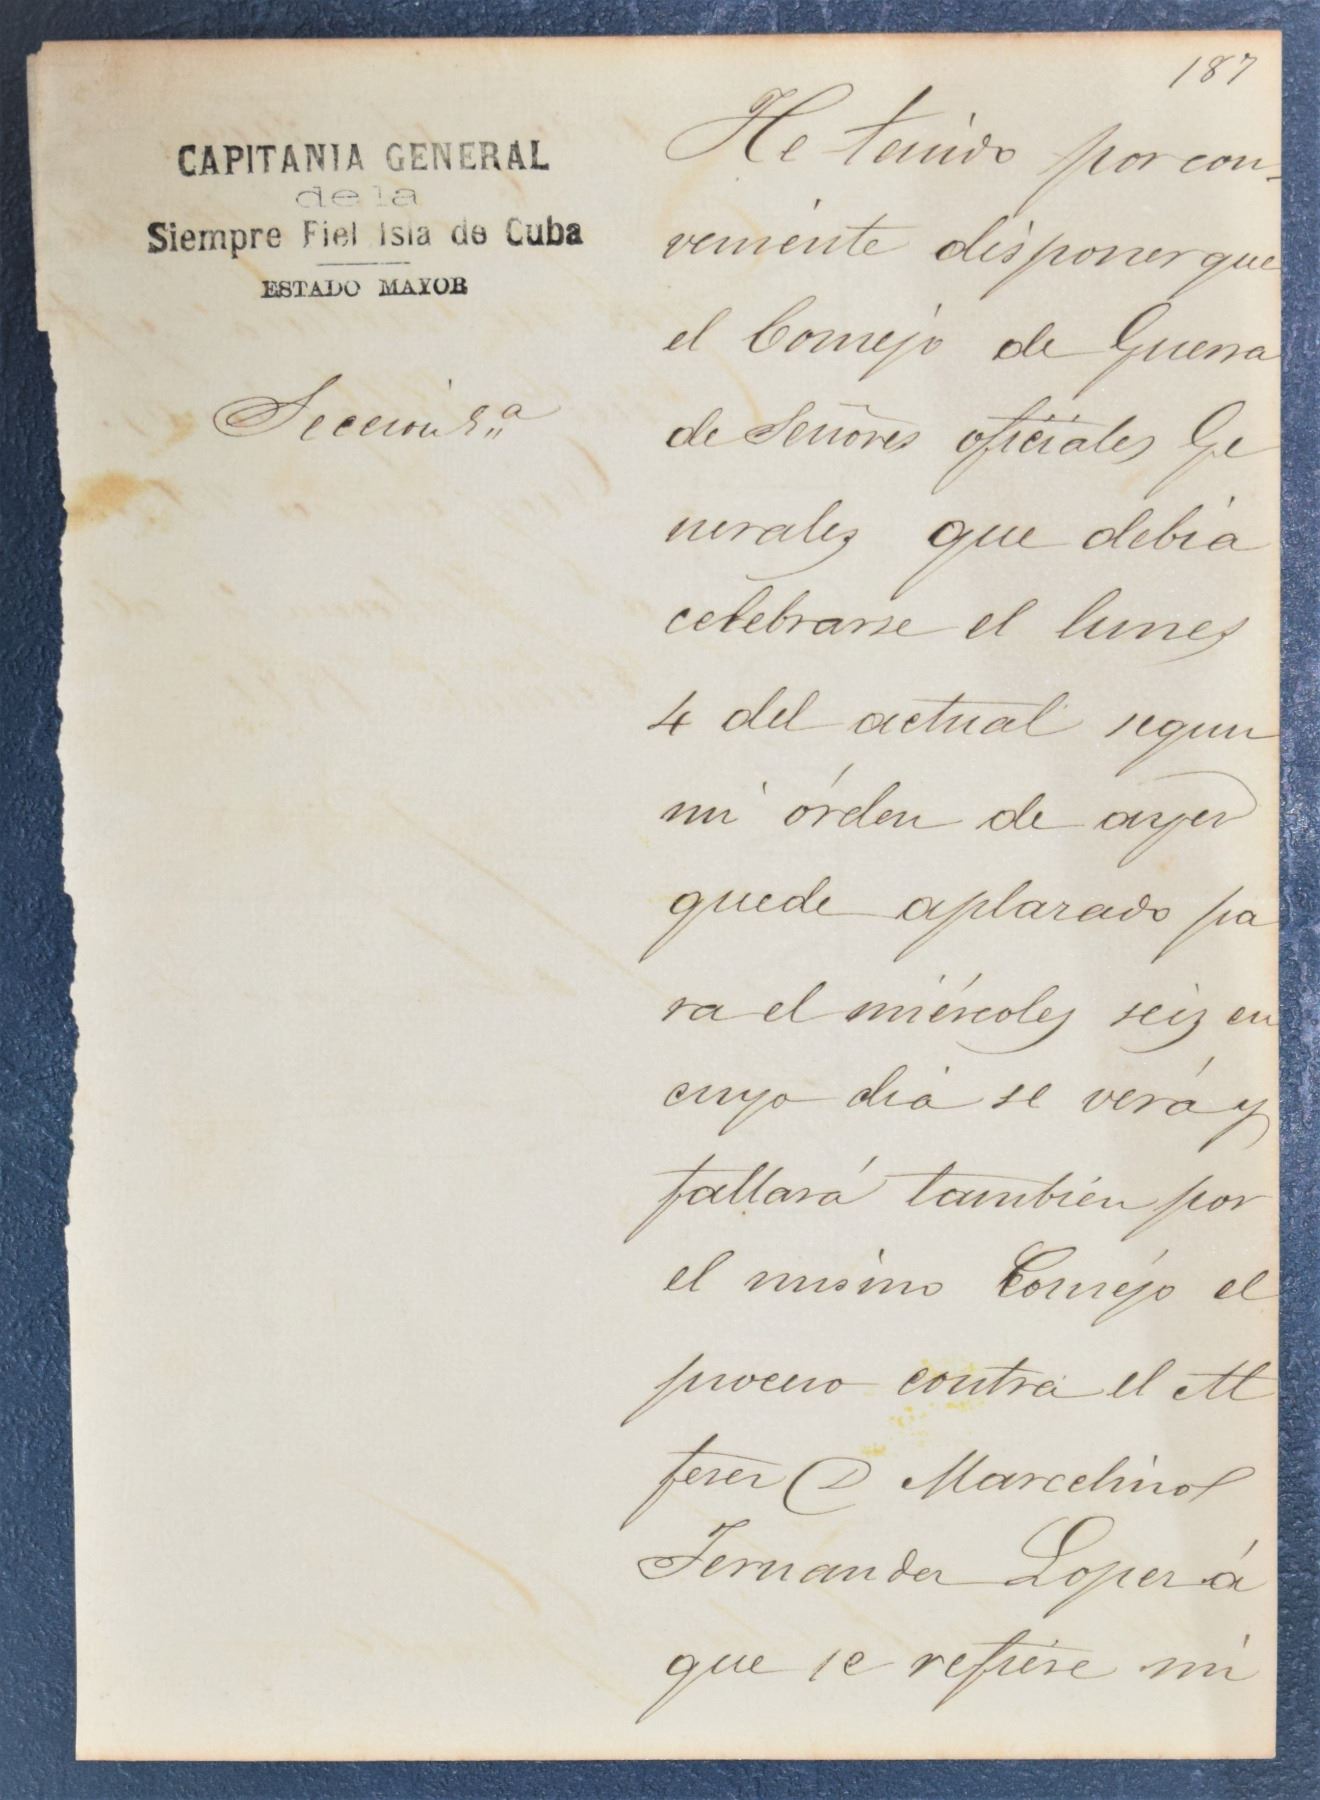 187
CAPITANIA GENERAL
de la
Siempre Fiel Isla de Cuba
ESTADO MAYOR
Seccion
He tenido por con-
veniente disponer que
el Consejo de Guerra
de Señores oficiales Ge
nerales que debia
celebrarse el lunes
4 del actual segun
mi órden de ayer
quede aplazado pa
ra el miércoles seis en
cuyo dia se verá y
fallará también por
el mismo Consejo el
proceso contra el Al
ferez D Marcelino
Fernandez Lopez á
que se refiere mi